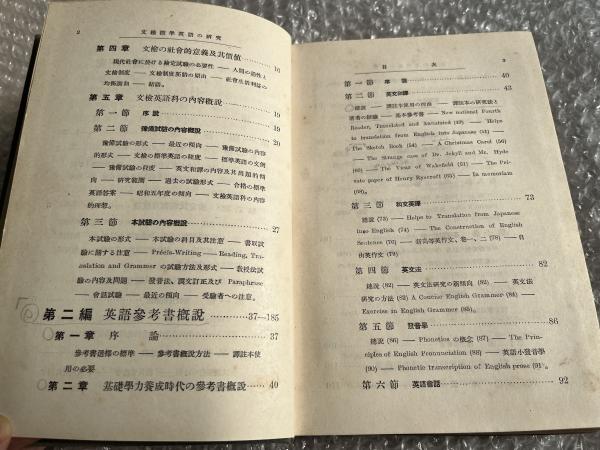 2　文檢標準英語の研究
第四章　文檢の社會的意義及其價値 16
現代社會に於ける檢定試驗の必要性 ― 人間の活性と
文檢制度 ― 文檢制度
の原由 ― 社會生活利益の
均衡 ― 結語。
第五章　文檢英語科の內容槪說 19
第一節　序說 19
第二節　豫備試驗の內容槪說 20
豫備試驗の形式 ― 最近の傾向 ― 豫備試驗の內容
的形式 ― 文檢の標準英語の程度 ― 標準英語の文例
― 豫備試驗の程度 ― 英文和譯の內容及其出題的傾
向 ― 研究範圍 ― 過去の試驗形式 ― 合格の標準
英語答案 ― 昭和五年度の傾向 ― 文檢英語科の內容
的理想。
第三節　本試驗の內容槪說 27
本試驗の形式 ― 本試驗の科目及其注意 ― 書取試
驗に關する注意 ― Précis-Writing ― Reading, Tr-
anslation and Grammar の試驗方法及形式 ― 敎授法試
驗の內容及問題 ― 發音法、誤文訂正及び Paraphrase
― 會話試驗 ― 最近の傾向 ― 受驗者への注意。
第二編　英語參考書槪說 37―185
第一章　序論 37
參考書選擇の標準 ― 參考書槪說方法 ― 譯註本使
用の必要
第二章　基礎學力養成時代の參考書槪說 40
目次　3
第一節　序說 40
第二節　英文和譯 43
總說 ― 譯註本使用の理由 ― 譯註本の研究法と
著者の經驗 ― 基本參考書 ― New national Fourth
Reader, Translated and Annotated (49) ― Helps
to translation from English into Japanese (54) ―
The Sketch Book (54) ― A Christmas Carol (56)
― The Strange case of Dr. Jekyll and Mr. Hyde
(62) ― The Vicar of Wakefield (61) ― The Pri-
vate paper of Henry Ryecroft (66) ― In memoriam
(68)。
第三節　和文英譯 73
總說 (73) ― Helps to Translation from Japanese
into English (74) ― The Construction of English
Sentence (76) ― 新高等英作文、卷一、二 (78) ― 自
由英作文 (79)
第四節　英文法 82
總說 (82) ― 英文法研究の新傾向 (82) ― 英文法
研究の方法 (82) A Concise English Grammar (84) ―
Exercise in English Grammar (85)。
第五節　發音學 86
總說 (86) ― Phonetics の槪念 (87) ― The Prin-
ciples of English Pronunciation (88) ― 英語小發音學
(90) ― Phonetic transcription of English prose (91)。
第六節　英語會話 92